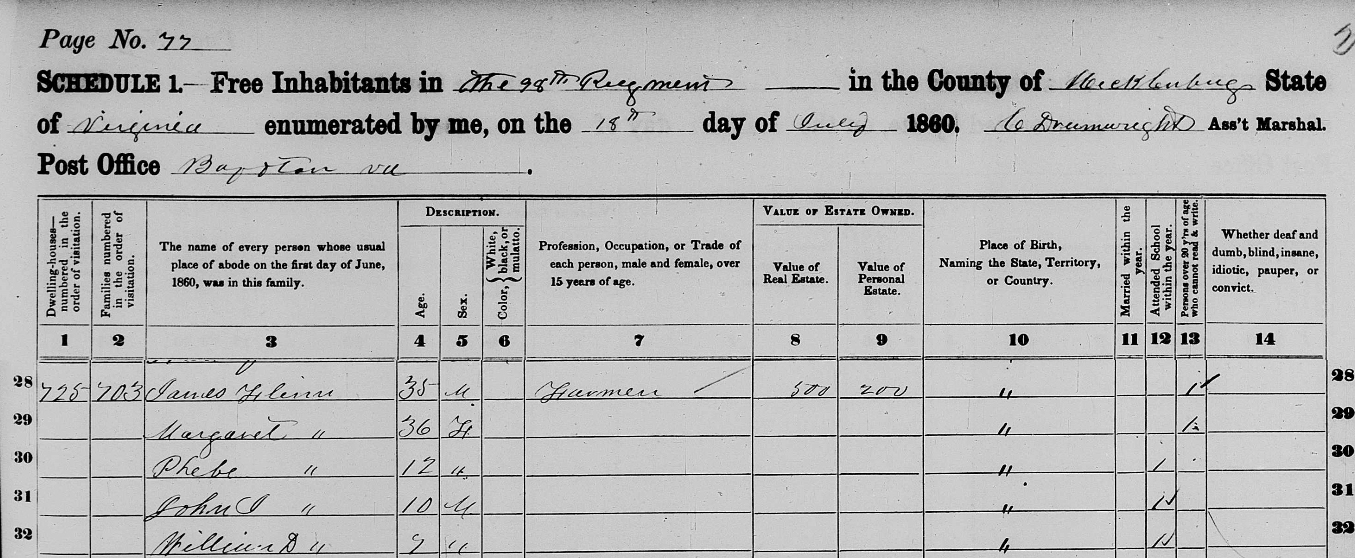 Page No. 77
SCHEDULE 1.— Free Inhabitants in The 98th Regment in the County of Mecklenburg State
of Virginia enumerated by me, on the 18th day of July 1860. C Drumwright Ass't Marshal.
Post Office Boydton va .
DESCRIPTION. VALUE OF ESTATE OWNED.
Dwelling-houses—numbered in the order of visitation. Families numbered in the order of visitation. The name of every person whose usual place of abode on the first day of June, 1860, was in this family. Age. Sex. Color, { White, black, or mulatto. Profession, Occupation, or Trade of each person, male and female, over 15 years of age. Value of Real Estate. Value of Personal Estate. Place of Birth, Naming the State, Territory, or Country. Married within the year. Attended School within the year. Persons over 20 y'rs of age who cannot read & write. Whether deaf and dumb, blind, insane, idiotic, pauper, or convict.
1 2 3 4 5 6 7 8 9 10 11 12 13 14
28 725 703 James Flinn 35 M Farmer 500 200 " 1 28
29 Margaret " 36 F " 1 29
30 Phebe " 12 " " 1 30
31 John J " 10 M " 1 31
32 William D " 7 " " 1 32